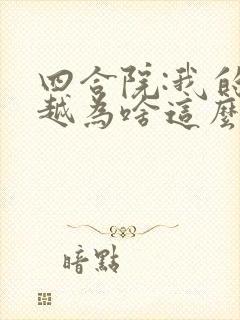 四合院:我的
越為啥這麼
暗點